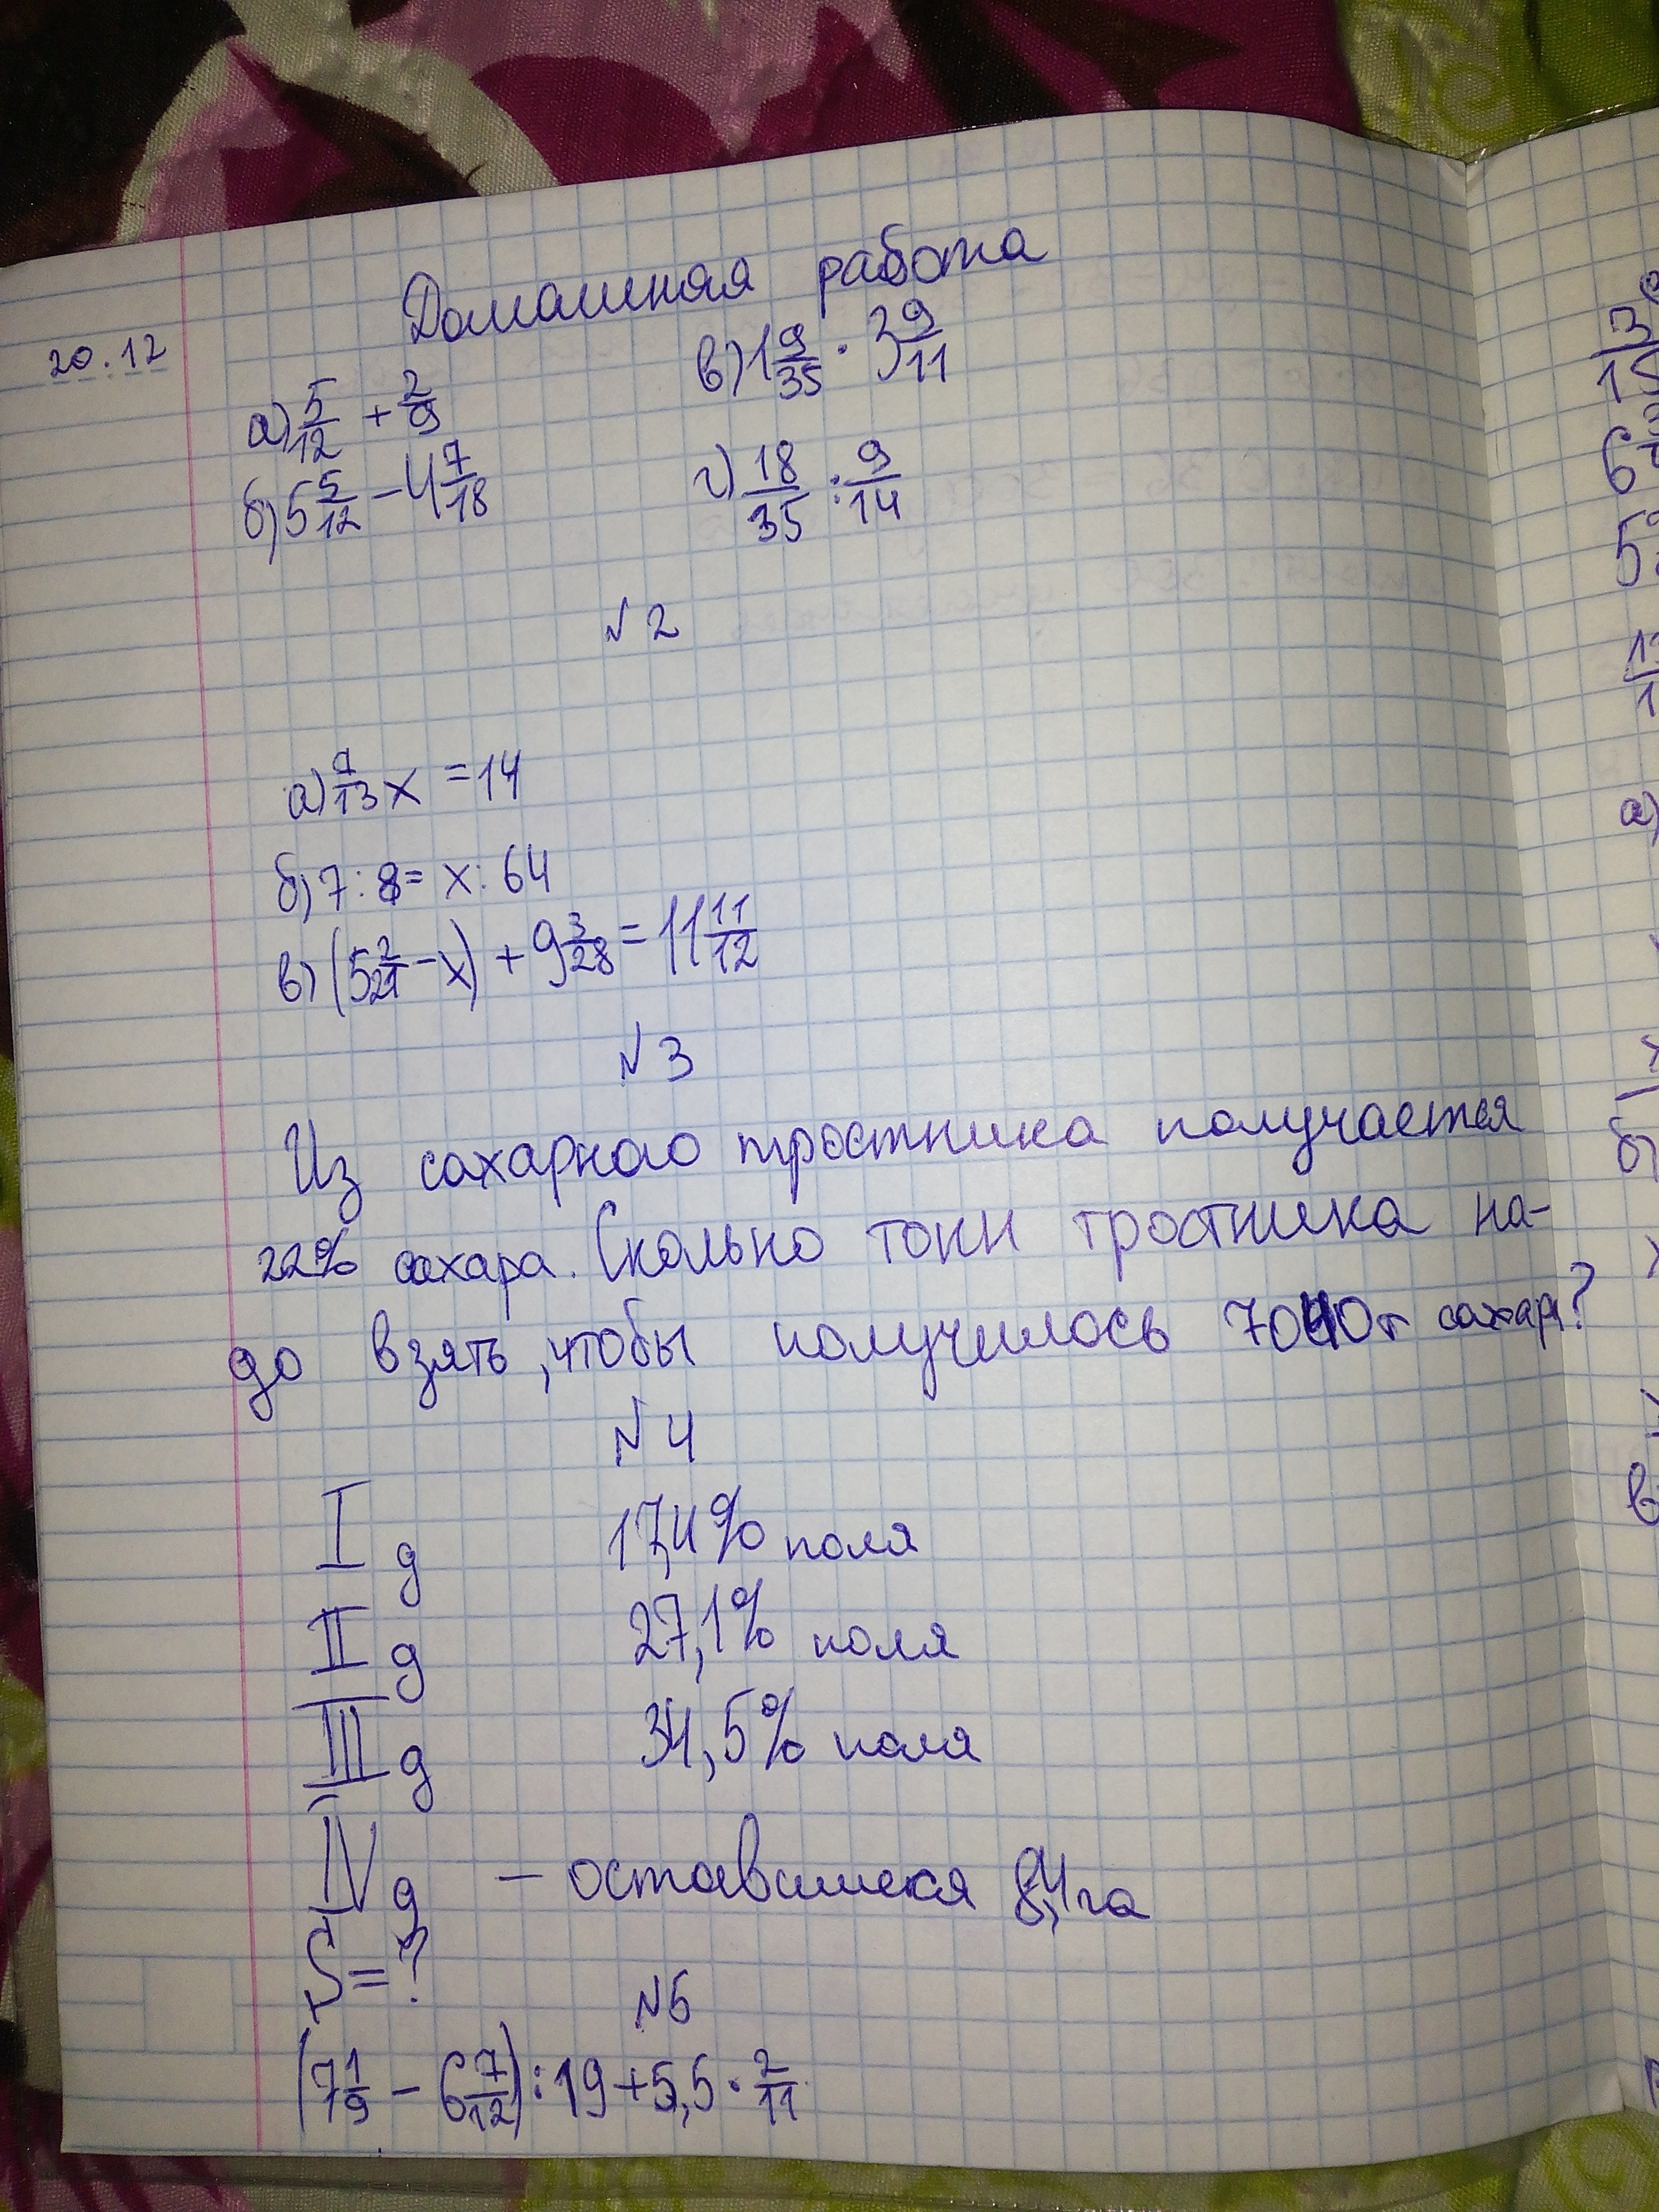 Домашняя работа
20.12
а) 5/12 + 2/9
в) 1 9/35 · 3 9/11
б) 5 5/12 - 4 7/18
г) 18/35 : 9/14
№2
а) 7/13 x = 14
б) 7 : 8 = x : 64
в) (5 2/21 - x) + 9 3/28 = 11 11/12
№3
Из сахарного тростника получается
22% сахара. Сколько тонн тростника на-
до взять, чтобы получилось 7040т сахара?
№4
I д 17,4% поля
II д 27,1% поля
III д 34,5% поля
IV д - оставшиеся 8,4 га
S = ?
№5
(7 1/9 - 6 7/12) : 19 + 5,5 · 2/11
3
15
6
5
1
а)
б)
в